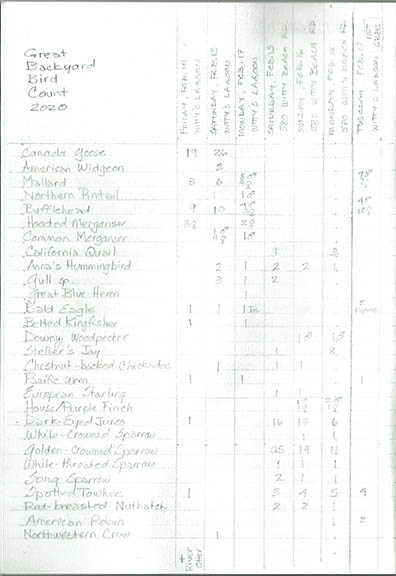 Great
Backyard
Bird
Count
2020
FRIDAY, FEB. 14 WITTY'S LAGOON
SATURDAY, FEB. 15 WITTY'S LAGOON
MONDAY, FEB. 17 WITTY'S LAGOON
SATURDAY, FEB. 15 580 WITTY BEACH RD.
SUNDAY, FEB. 16 580 WITTY BEACH RD
MONDAY, FEB. 17 580 WITTY BEACH RD.
TUESDAY, FEB. WITTY'S LAGOON NOT GBBC
Canada Goose 19 26
American Widgeon 2
Mallard 5 6
Northern Pintail 1 1♂
Bufflehead 9 10
Hooded Merganser 3♀ 2♀
Common Merganser 1♂ 4♀ 1♂
California Quail 1 2
Anna's Hummingbird 2 1 2 2 1
Gull sp. 3 1 2
Great Blue Heron 1
Bald Eagle 1 1 1 2
Belted Kingfisher 1 1
Downy Woodpecker 1♂ 1♂
Steller's Jay 1 8
Chestnut-backed Chickadee 1 1 1
Pacific Wren 1 1 1
European Starling 1 1
House/Purple Finch
Dark-Eyed Junco 1 16 17 6
White-Crowned Sparrow 1 1
Golden-Crowned Sparrow 25 14 11
White-throated Sparrow 1 1 1
Song Sparrow 2 1 1
Spotted Towhee 1 3 4 5 4
Red-breasted Nuthatch 2 2 1
American Robin 1 2
Northwestern Crow 1
+ River Otter